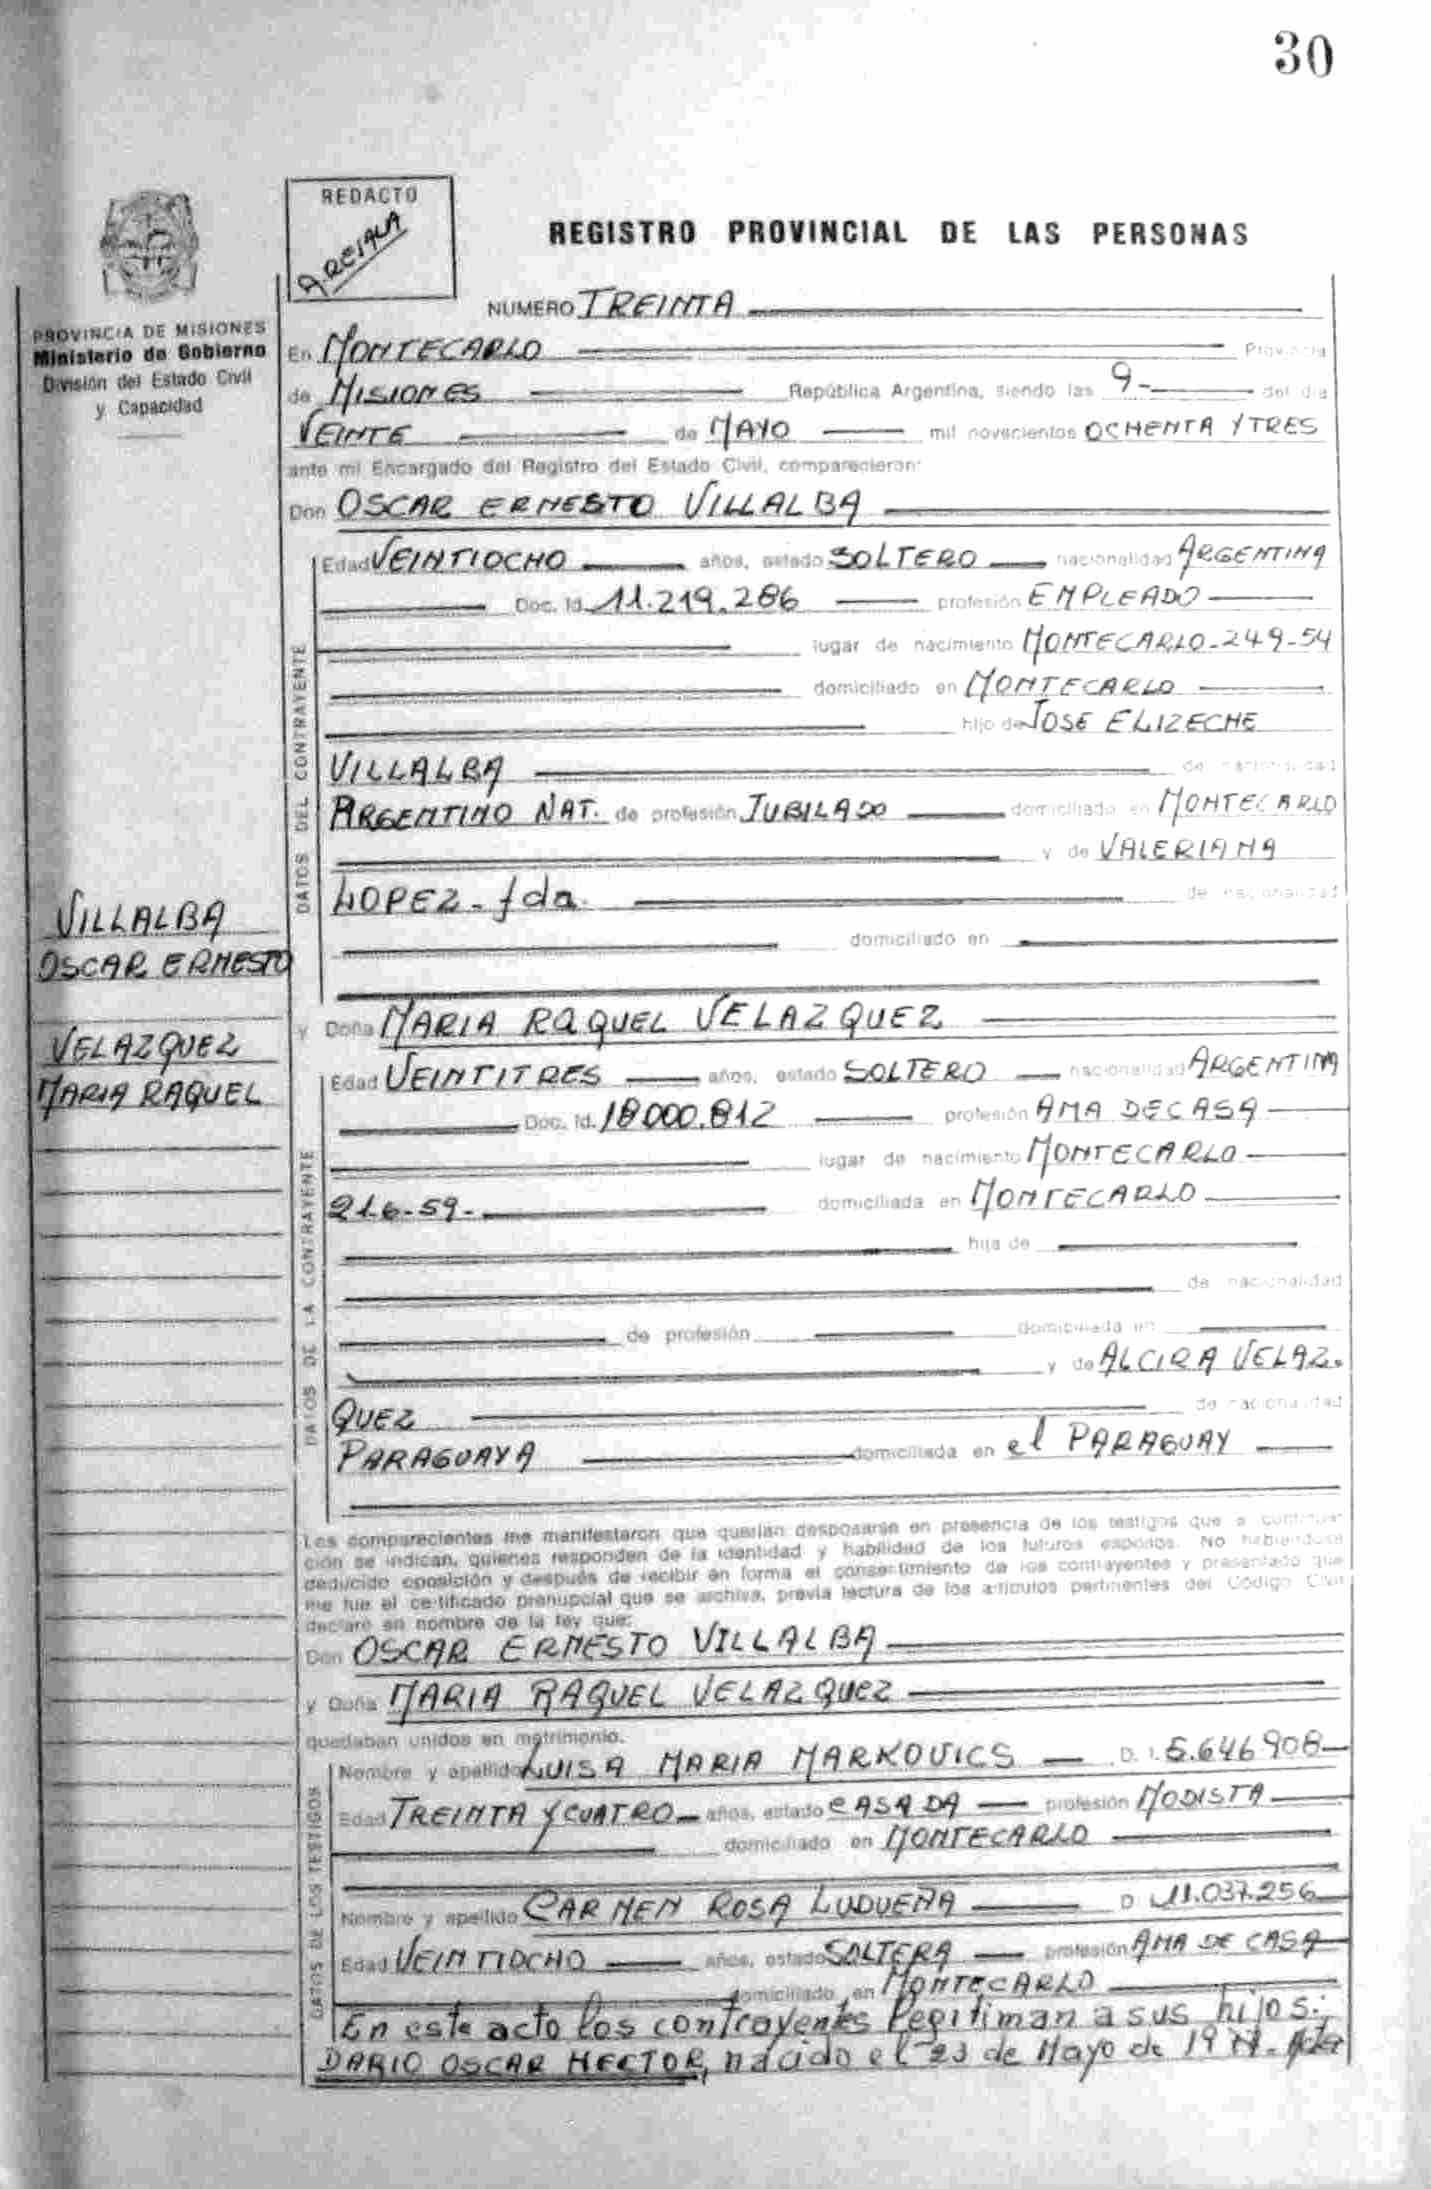 30
REDACTO
AREJALA
REGISTRO PROVINCIAL DE LAS PERSONAS
NUMERO TREINTA
PROVINCIA DE MISIONES
Ministerio de Gobierno
División del Estado Civil
y Capacidad
En MONTECARLO Provincia
de MISIONES República Argentina, siendo las 9- del día
VEINTE de MAYO mil novecientos OCHENTA Y TRES
ante mi Encargado del Registro del Estado Civil, comparecieron:
Don OSCAR ERNESTO VILLALBA
DATOS DEL CONTRAYENTE
Edad VEINTIOCHO años, estado SOLTERO nacionalidad ARGENTINA
Doc. Id. 11.219.286 profesión EMPLEADO
lugar de nacimiento MONTECARLO-249-54
domiciliado en MONTECARLO
hijo de JOSE ELIZECHE
VILLALBA de nacionalidad
ARGENTINO NAT. de profesión JUBILADO domiciliado en MONTECARLO
y de VALERIANA
LOPEZ- fda. de nacionalidad
domiciliado en
VILLALBA
OSCAR ERNESTO
VELAZQUEZ
MARIA RAQUEL
y Doña MARIA RAQUEL VELAZQUEZ
DATOS DE LA CONTRAYENTE
Edad VEINTITRES años, estado SOLTERO nacionalidad ARGENTINA
Doc. Id. 18000.812 profesión AMA DE CASA
lugar de nacimiento MONTECARLO
216-59- domiciliada en MONTECARLO
hija de
de nacionalidad
de profesión domiciliada en
y de ALCIRA VELAZ-
QUEZ de nacionalidad
PARAGUAYA domiciliada en el PARAGUAY
Los comparecientes me manifestaron que querían desposarse en presencia de los testigos que a continua-
ción se indican, quienes responden de la identidad y habilidad de los futuros esposos. No habiéndose
deducido oposición y después de recibir en forma el consentimiento de los contrayentes y presentado que
me fue el certificado prenupcial que se archiva, previa lectura de los artículos pertinentes del Código Civil
declaro en nombre de la ley que:
Don OSCAR ERNESTO VILLALBA
y Doña MARIA RAQUEL VELAZQUEZ
quedaban unidos en matrimonio.
DATOS DE LOS TESTIGOS
Nombre y apellido LUISA MARIA MARKOVICS D. I. 5.646908
Edad TREINTA Y CUATRO años, estado CASADA profesión MODISTA
domiciliado en MONTECARLO
Nombre y apellido CARMEN ROSA LUDUEÑA D 11.037.256
Edad VEINTIOCHO años, estado SOLTERA profesión AMA DE CASA
domiciliado en MONTECARLO
En este acto los contrayentes legitiman a sus hijos:
DARIO OSCAR HECTOR, nacido el 23 de Mayo de